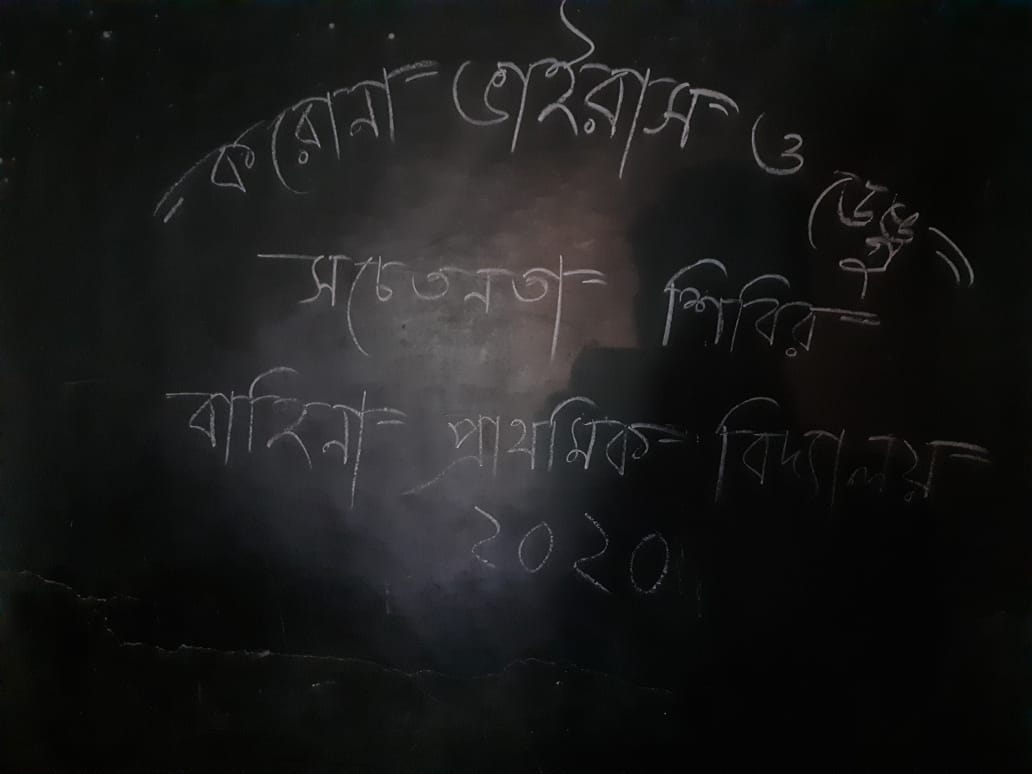 করোনা ভাইরাস ও ডেঙ্গু
সচেতনতা শিবির
বাহিনা প্রাথমিক বিদ্যালয়
২০২০